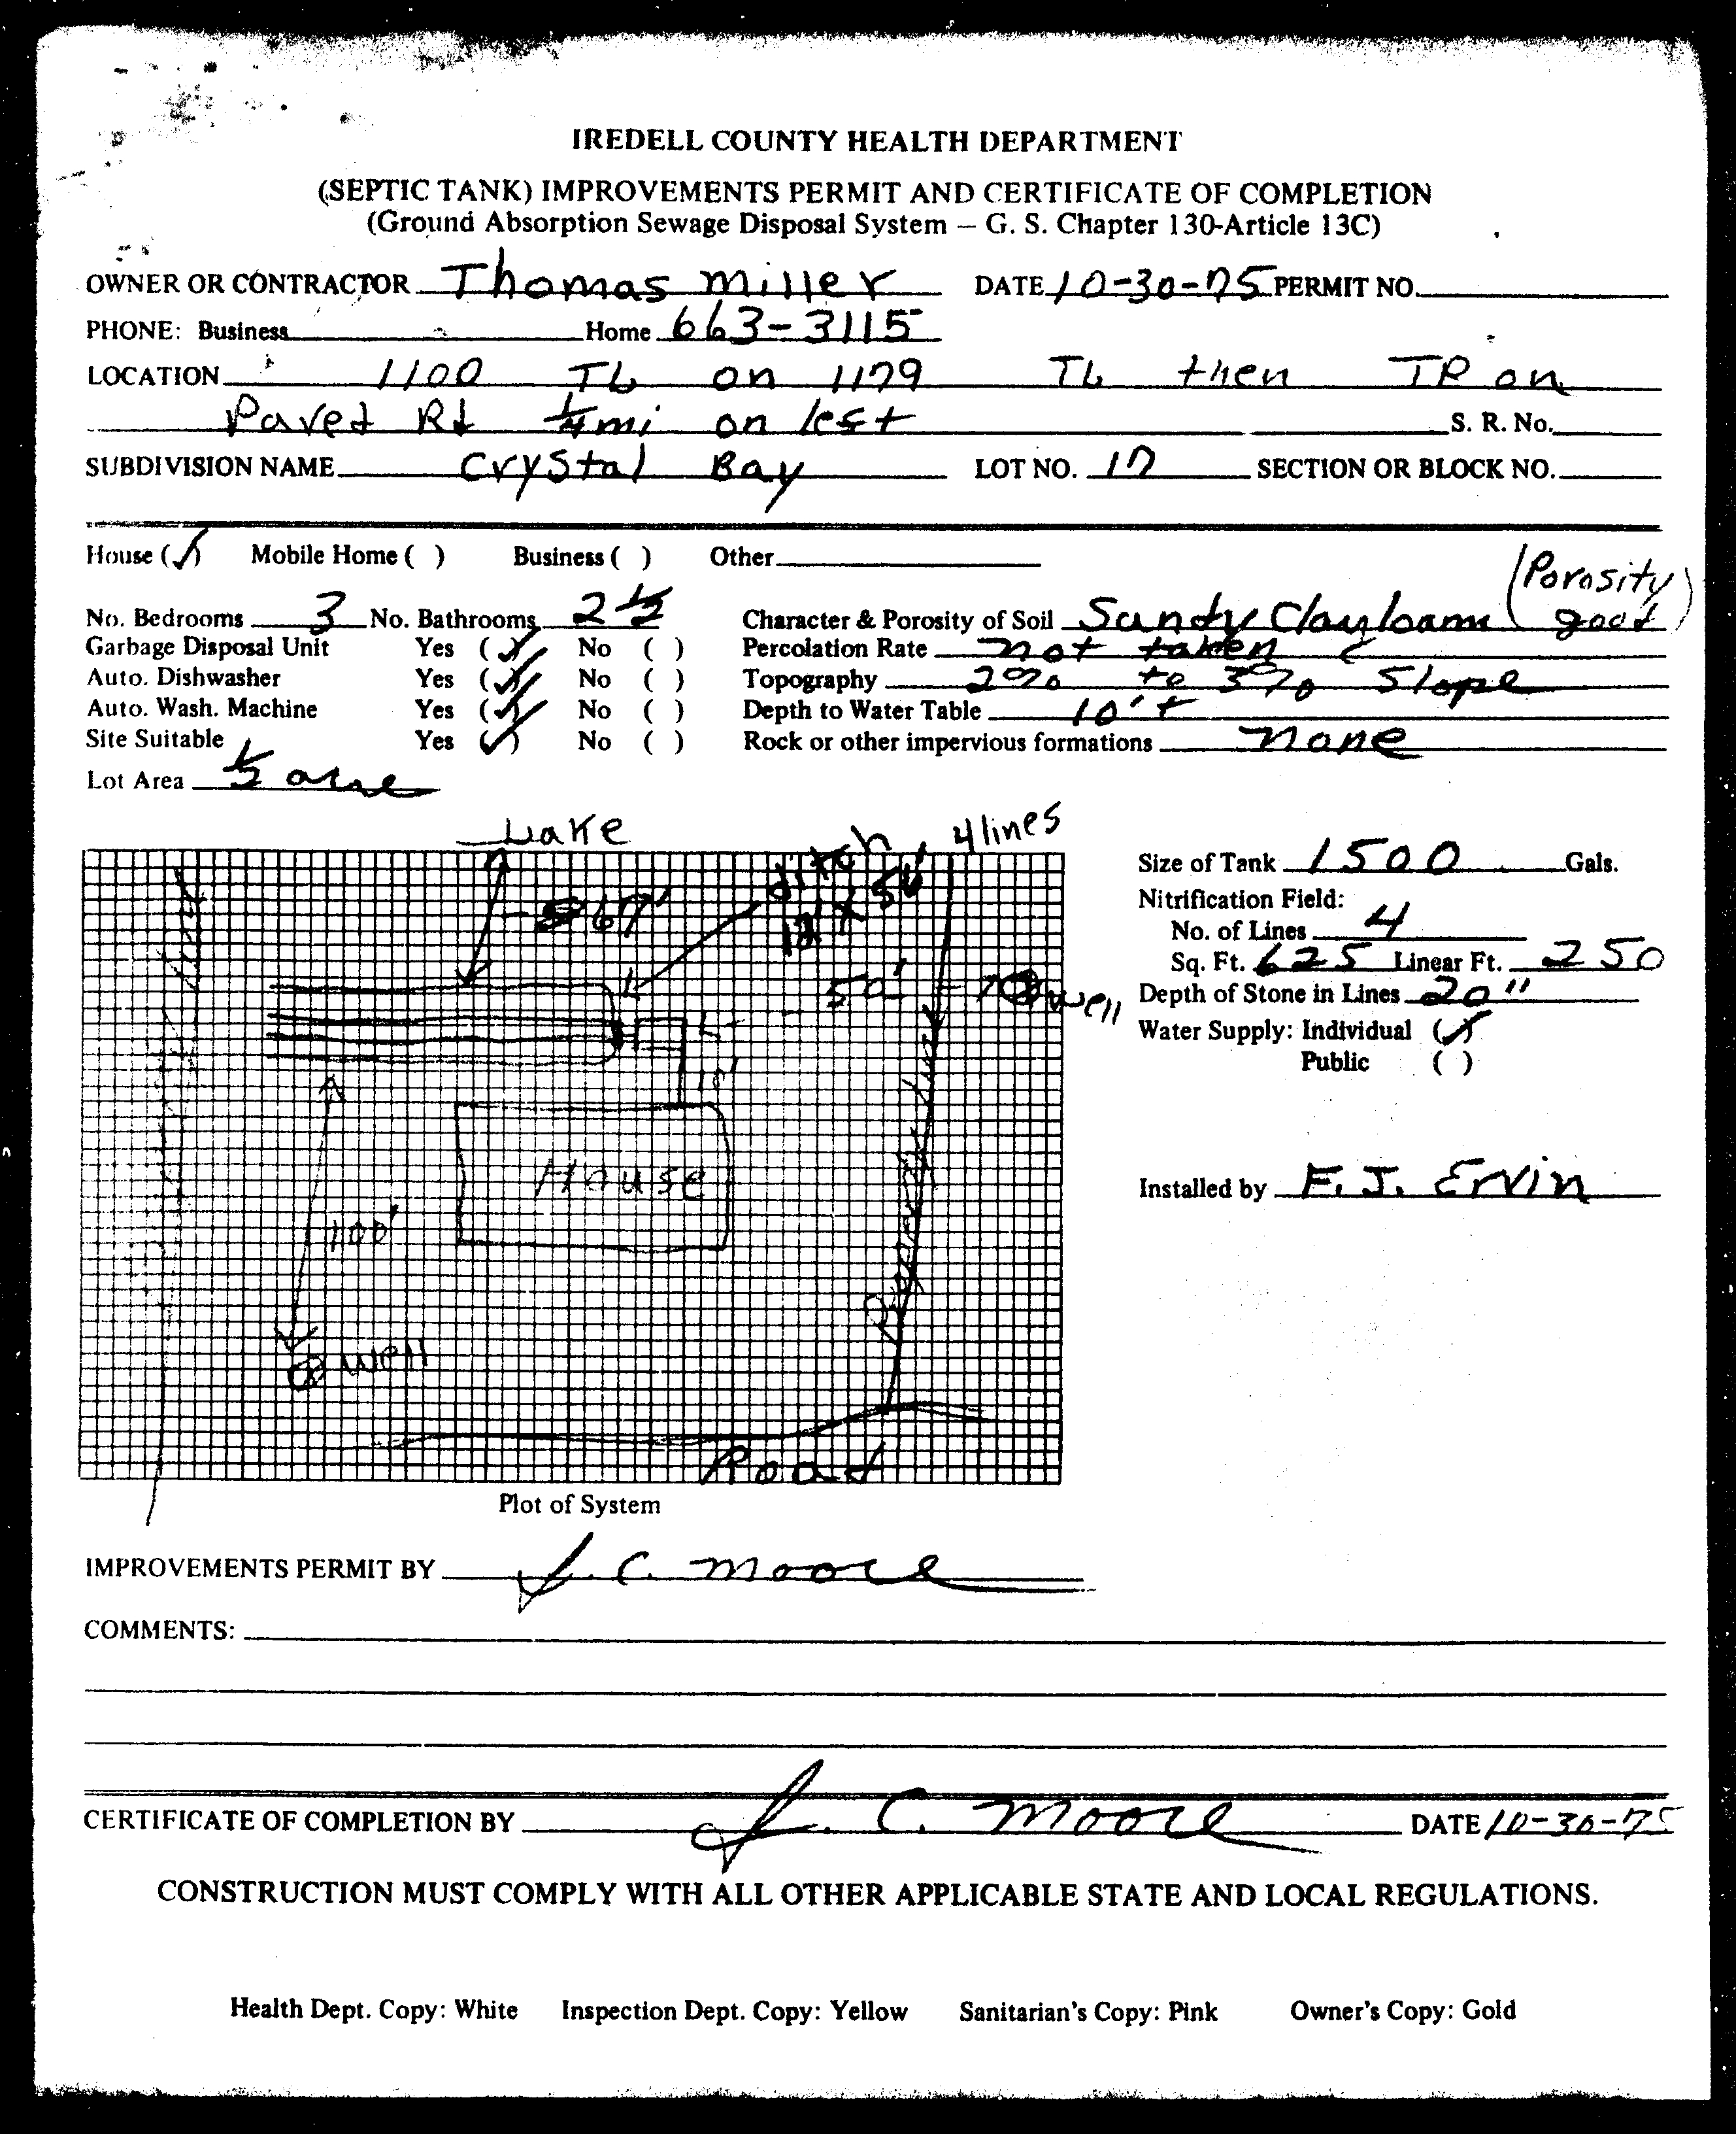 IREDELL COUNTY HEALTH DEPARTMENT
(SEPTIC TANK) IMPROVEMENTS PERMIT AND CERTIFICATE OF COMPLETION
(Ground Absorption Sewage Disposal System — G. S. Chapter 130-Article 13C)
OWNER OR CONTRACTOR Thomas Miller DATE 10-30-75 PERMIT NO.
PHONE: Business Home 663-3115
LOCATION 1100 TL on 1179 TL then TR on
Paved Rd 1/4 mi on left S. R. No.
SUBDIVISION NAME Crystal Bay LOT NO. 17 SECTION OR BLOCK NO.
House (✓) Mobile Home ( ) Business ( ) Other
No. Bedrooms 3 No. Bathrooms 2 1/2 Character & Porosity of Soil Sandy Clay loam (Porosity good)
Garbage Disposal Unit Yes (✓) No ( ) Percolation Rate not taken
Auto. Dishwasher Yes (✓) No ( ) Topography 2% to 3% Slope
Auto. Wash. Machine Yes (✓) No ( ) Depth to Water Table 10'+
Site Suitable Yes (✓) No ( ) Rock or other impervious formations none
Lot Area 1/2 acre
Lake
ditch 4 lines
67'
50' well
15'
House
100'
Property Line
well
Road
Plot of System
Size of Tank 1500 Gals.
Nitrification Field:
No. of Lines 4
Sq. Ft. 625 Linear Ft. 250
Depth of Stone in Lines 20"
Water Supply: Individual (✓)
Public ( )
Installed by F. J. Ervin
IMPROVEMENTS PERMIT BY J. C. Moore
COMMENTS:
CERTIFICATE OF COMPLETION BY J. C. Moore DATE 10-30-75
CONSTRUCTION MUST COMPLY WITH ALL OTHER APPLICABLE STATE AND LOCAL REGULATIONS.
Health Dept. Copy: White Inspection Dept. Copy: Yellow Sanitarian's Copy: Pink Owner's Copy: Gold